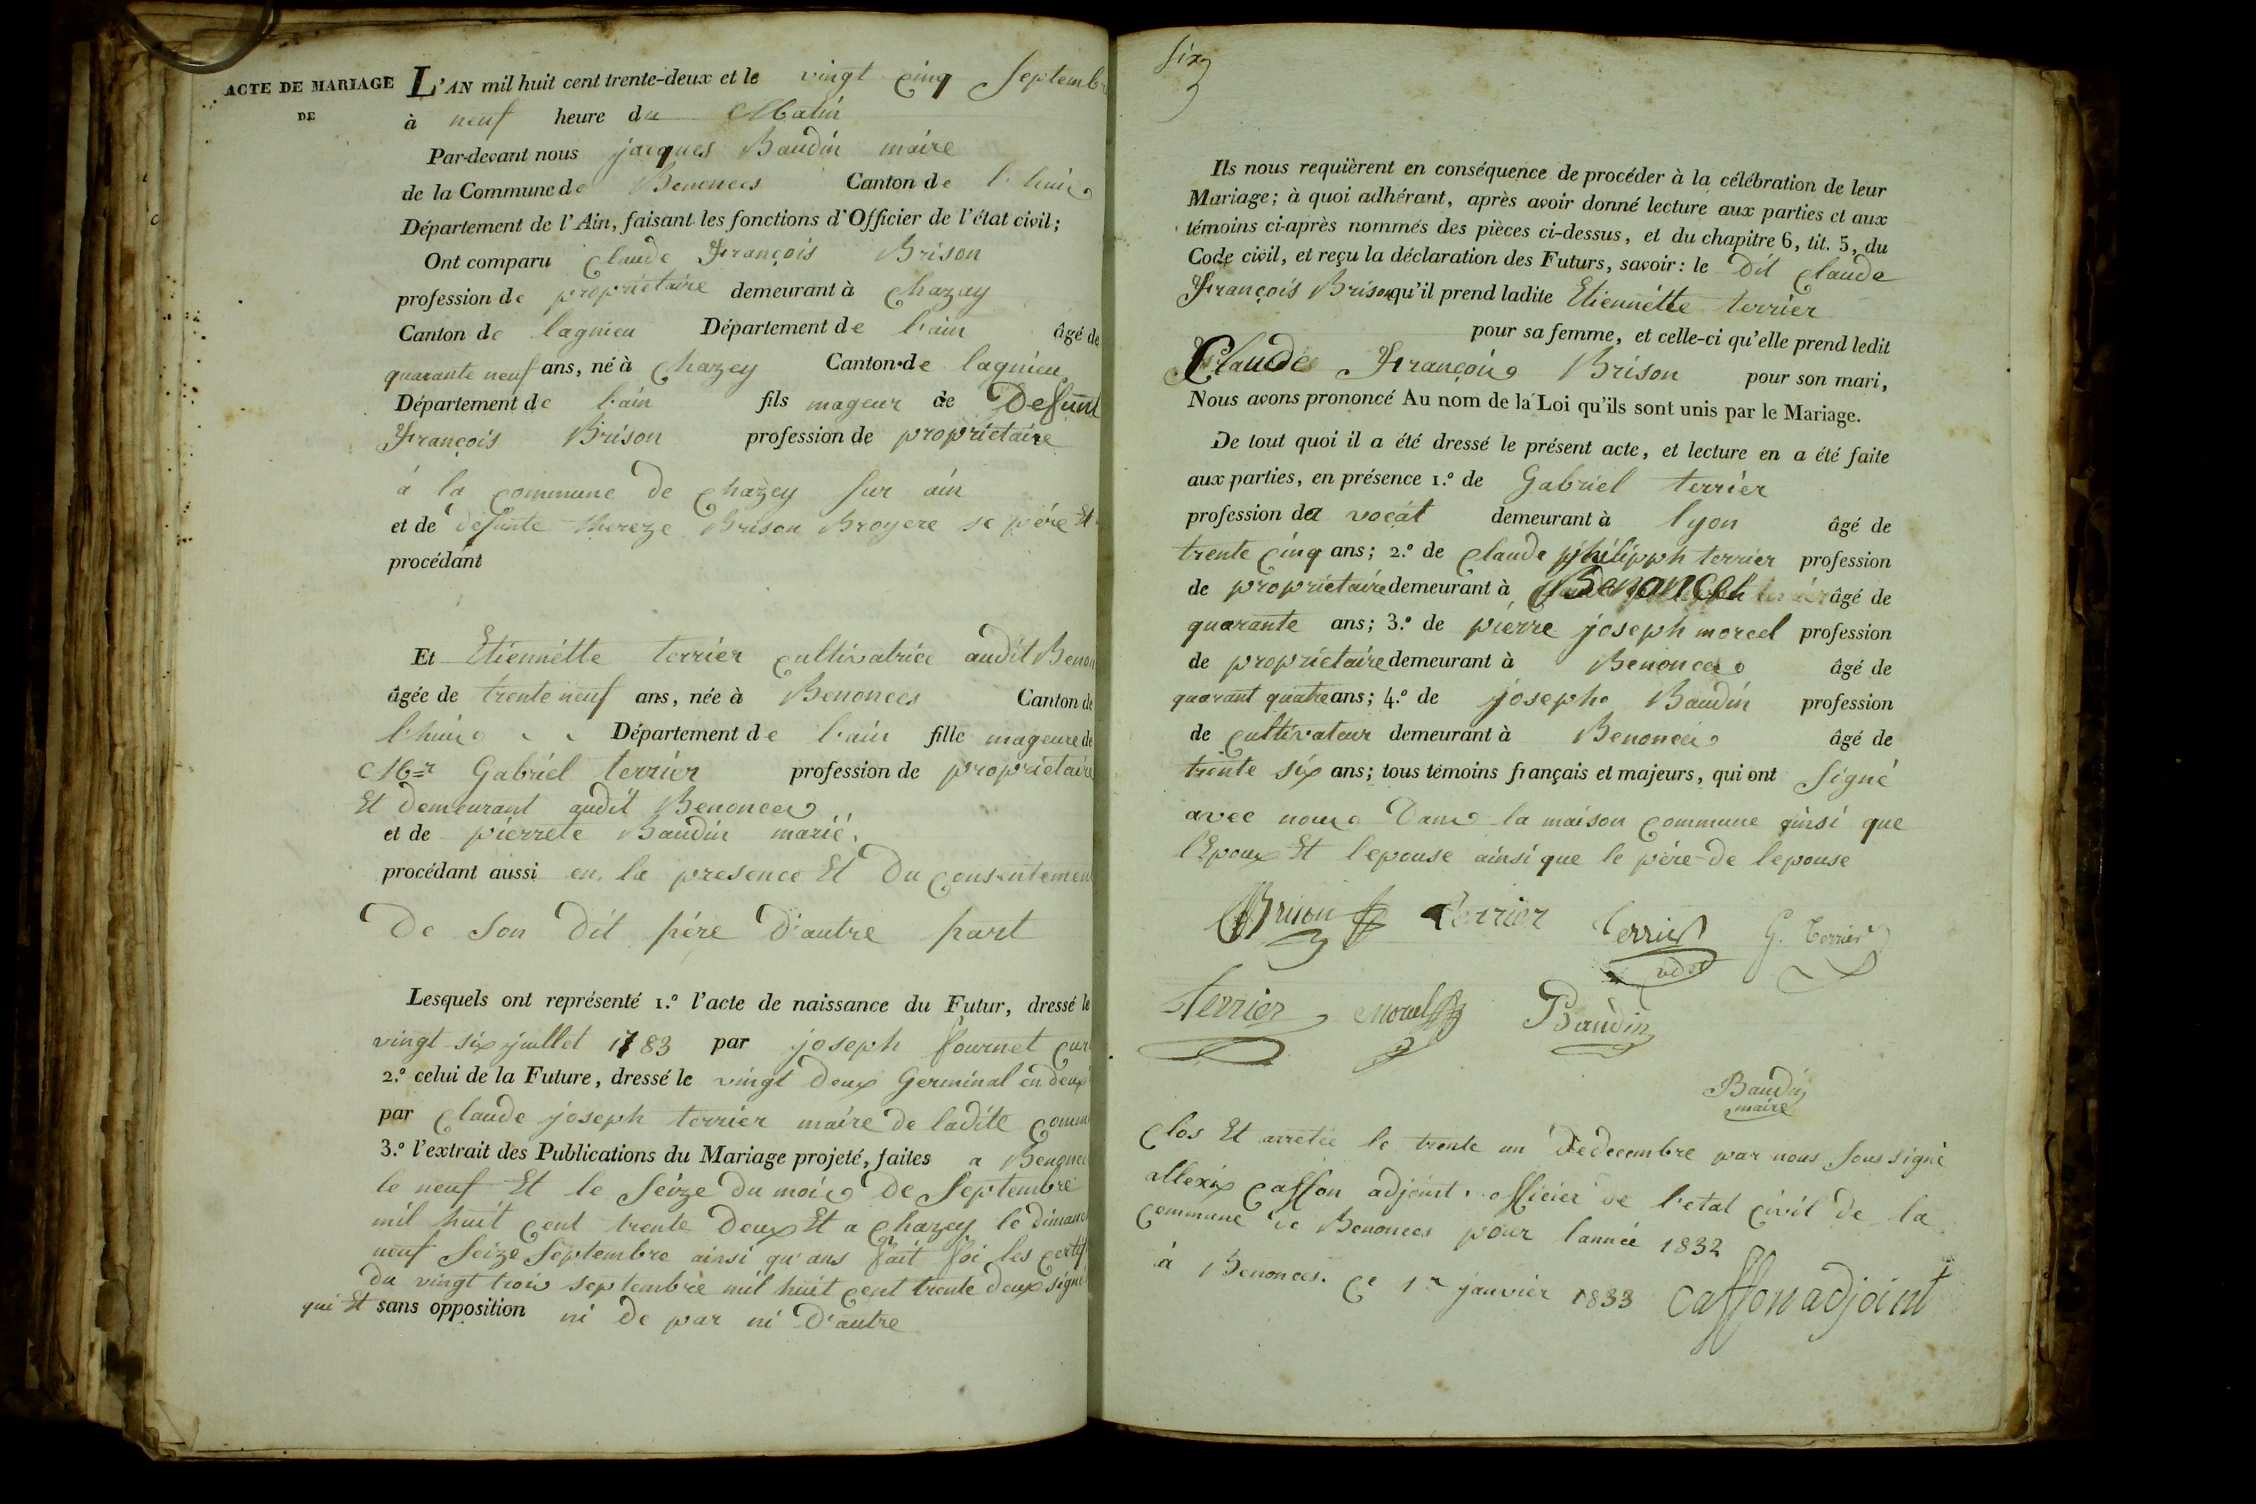 ACTE DE MARIAGE
DE
L'AN mil huit cent trente-deux et le vingt cinq Septemb
à neuf heure du Matin
Par-devant nous jacques Baudin maire
de la Commune de Benonces Canton de
Département de l'Ain, faisant les fonctions d'Officier de l'état civil;
Ont comparu Claude François Brison
profession de propriétaire demeurant à Chazay
Canton de lagnieu Département de l'ain âgé de
quarante neuf ans, né à Chazey Canton de lagnieu
Département de l'ain fils mageur de Defunt
François Brison profession de propriétaire
à la Commune de Chazey Sur ain
et de defunte thereze Brison Broyere se père Et
procédant
Et Etiennétte terrier Cultivatrice audit Benon
âgée de trente neuf ans, née à Benonces Canton de
lhuis Département de l'ain fille mageure de
Mr Gabriél terrier profession de propriétaire
Et demeurant audit Benonces
et de pierrete Baudin marié.
procédant aussi en la presence Et Du Consentemen
De Son Dit père D'autre part
Lesquels ont représenté 1.º l'acte de naissance du Futur, dressé le
vingt six juillet 1783 par joseph fournet Cur
2.º celui de la Future, dressé le vingt Deux Germinal en deux
par Claude joseph terrier maire De ladite Comm
3.º l'extrait des Publications du Mariage projeté, faites a Benonce
le neuf Et le Seize Du mois De Septembre
mil huit Cent trente Deux Et a Chazey le dimanc
neuf Seize Septembre ainsi qu'ans fait foi les Certif
du vingt trois septembre mil huit cent trente deux signé
qui Et sans opposition ni De par ni D'autre
six
Ils nous requièrent en conséquence de procéder à la célébration de leur
Mariage; à quoi adhérant, après avoir donné lecture aux parties et aux
témoins ci-après nommés des pièces ci-dessus, et du chapitre 6, tit. 5, du
Code civil, et reçu la déclaration des Futurs, savoir: le Dit Claude
François Brison qu'il prend ladite Etiennétte terrier
pour sa femme, et celle-ci qu'elle prend ledit
Claude François Brison pour son mari,
Nous avons prononcé Au nom de la Loi qu'ils sont unis par le Mariage.
De tout quoi il a été dressé le présent acte, et lecture en a été faite
aux parties, en présence 1.º de Gabriel terrier
profession de a vocát demeurant à lyon âgé de
trente Cinq ans; 2.º de Claude philipph terrier profession
de propriétaire demeurant à Benance âgé de
quarante ans; 3.º de pierre joseph morel profession
de propriétaire demeurant à Benonces âgé de
quarant quatre ans; 4.º de joseph Baudin profession
de Cultivateur demeurant à Benonces âgé de
trente six ans; tous témoins français et majeurs, qui ont Signé
avec nous Dans la maison Commune ainsi que
l'Epoux Et lepouse ainsi que le père De lepouse
Brison terrier terrier G. Terrier
terrier morel Baudin
Baudin
maire
Clos Et arretée le trente un De decembre par nous Soussigné
allexis Caffon adjoint. officier de l'etat Civil De la
Commune de Benonces pour lannée 1832
à Benonces. Ce 1er janvier 1833 Caffon adjoint